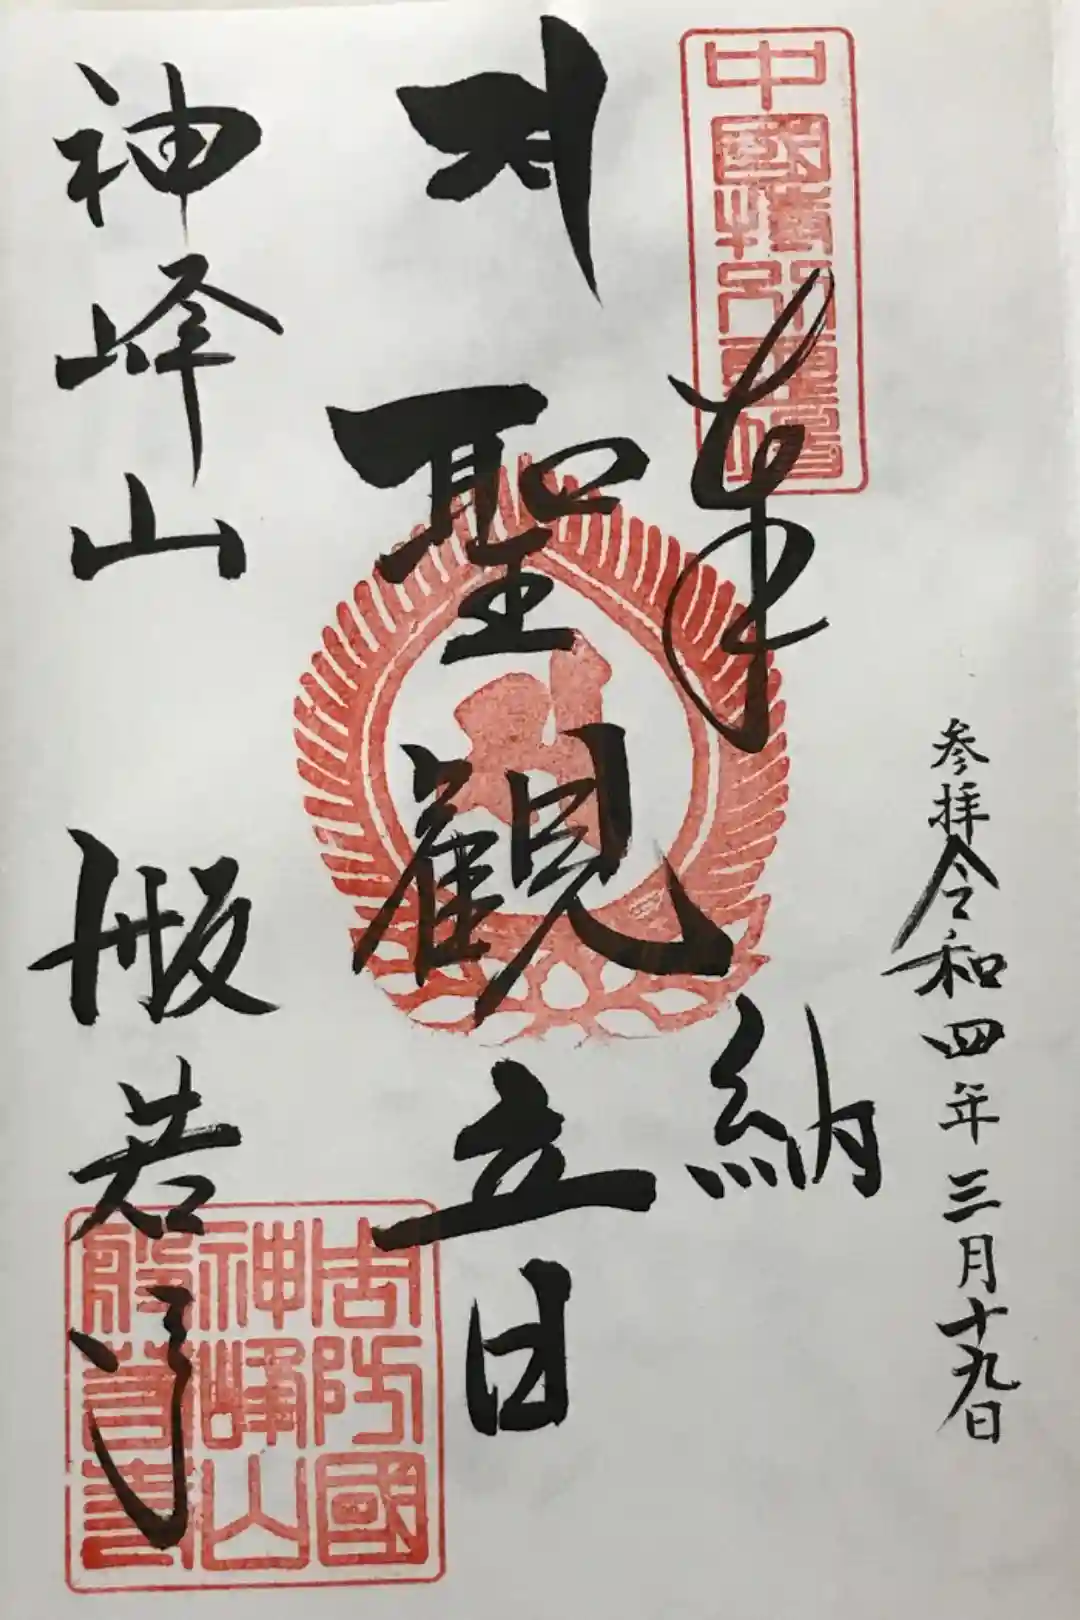 参拝令和四年三月十九日
奉納
聖観立日
神峰山 般若寺
周防國
神峰山
般若寺